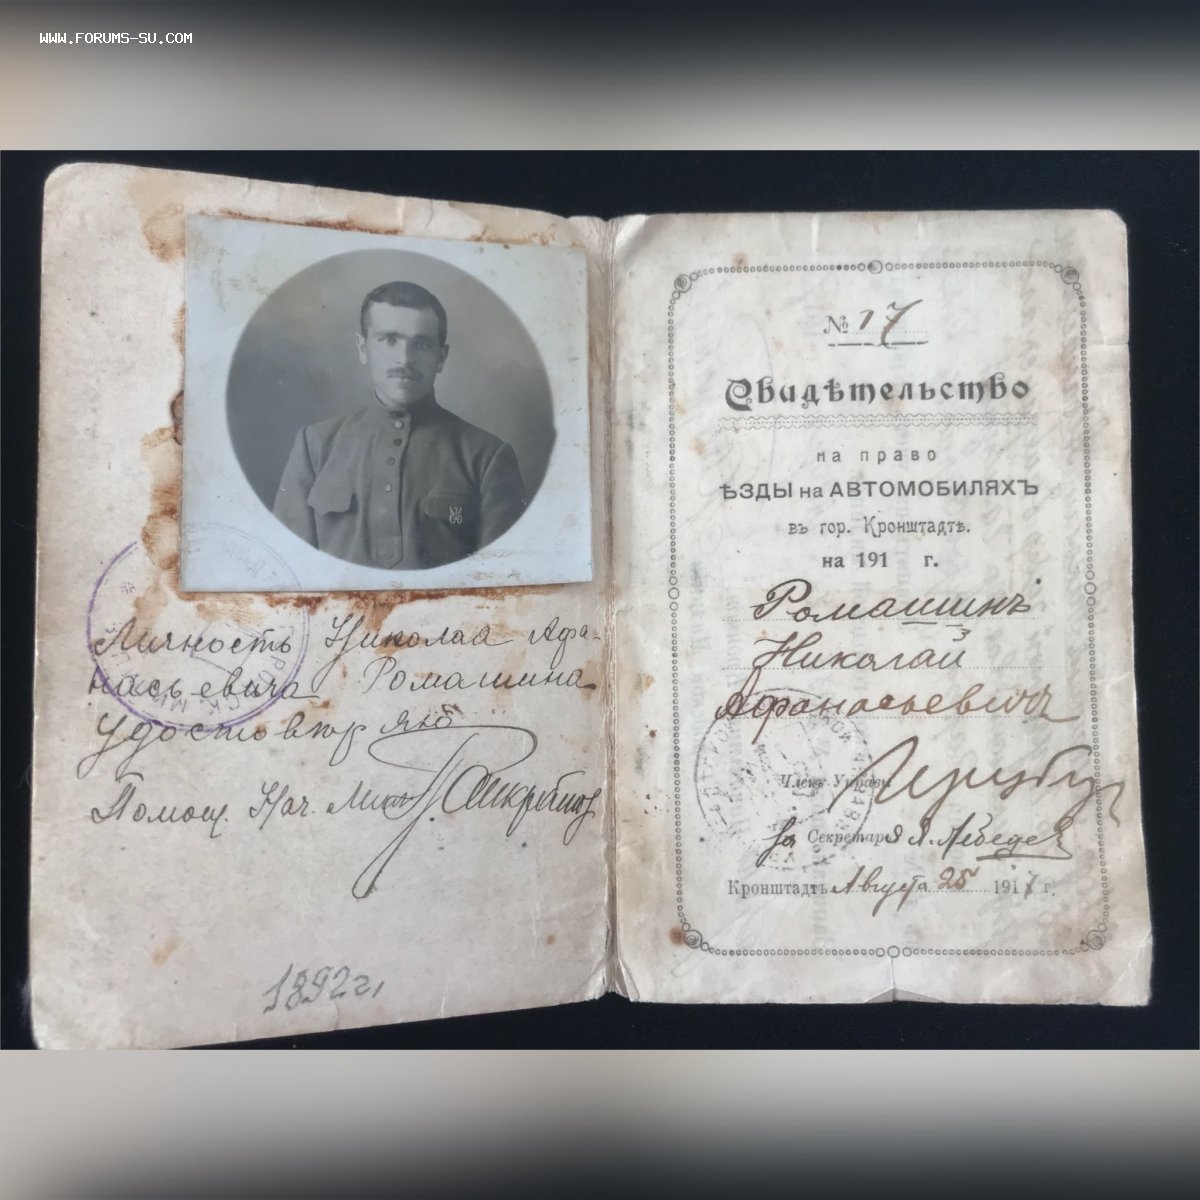 WWW.FORUMS-SU.COM
Личность Николая Афа-
насьевича Ромашина
удостоверяю
Помощ. Нач. Мил.
1892 г.
№ 17
Свидѣтельство
на право
ѢЗДЫ на АВТОМОБИЛЯХЪ
въ гор. Кронштадтѣ.
на 191 г.
Ромашинъ
Николай
Афанасьевичъ
Членъ Управы
за Секретаря Я. Лебедев
Кронштадтъ Августа 25 1917 г.